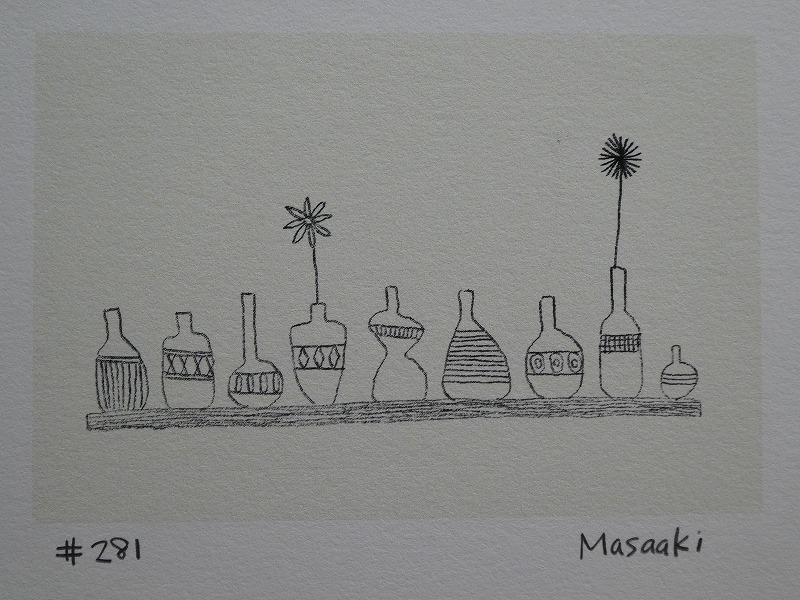 #281
Masaaki